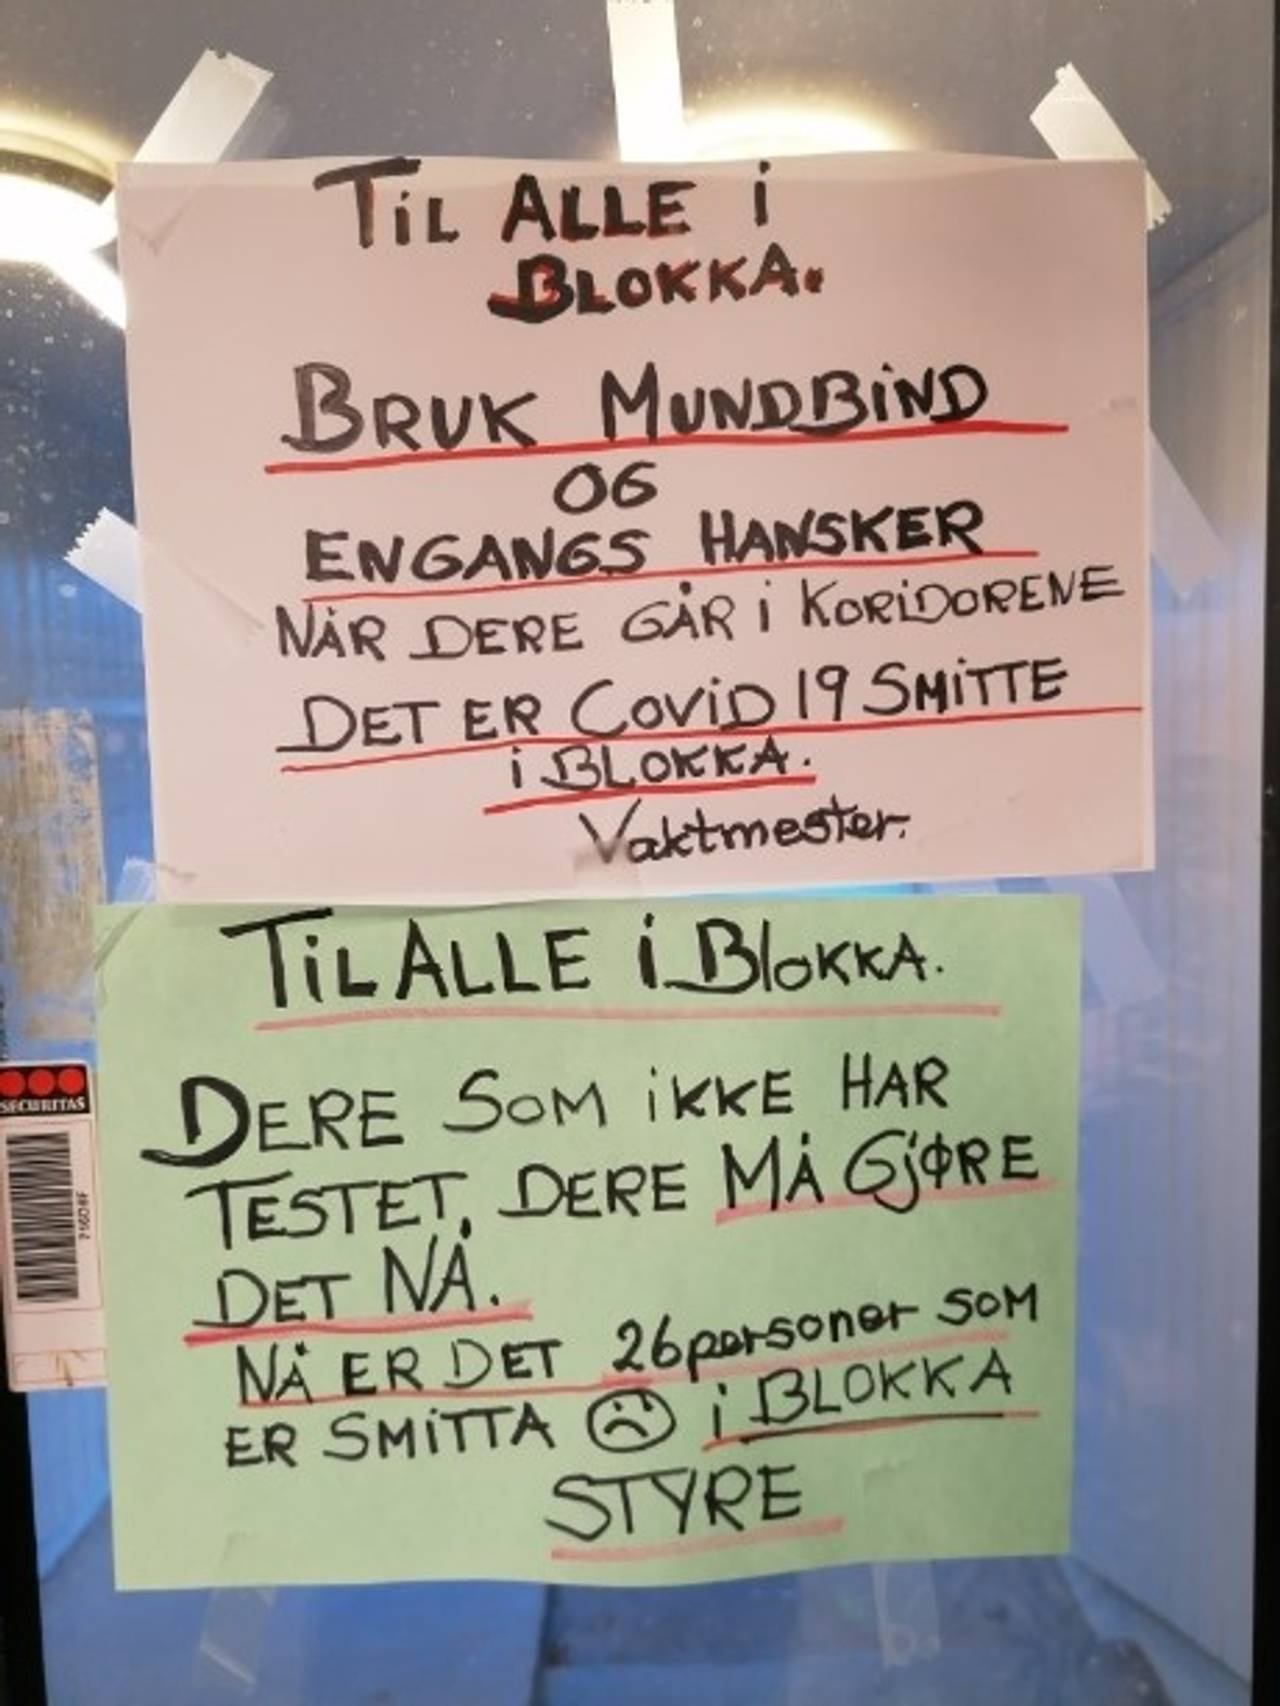 TiL ALLE i
BLOKKA.
BRUK MUNDBiND
OG
ENGANGS HANSKER
NÅR DERE GÅR i KORiDORENE
DET ER COViD 19 SMiTTE
i BLOKKA.
Vaktmester.
TiL ALLE i BloKKA.
DERE SOM iKKE HAR
TESTET, DERE MÅ GjØRE
DET NÅ.
NÅ ER DET 26 personer SOM
ER SMiTTA i BLOKKA
STYRE
SECURITAS